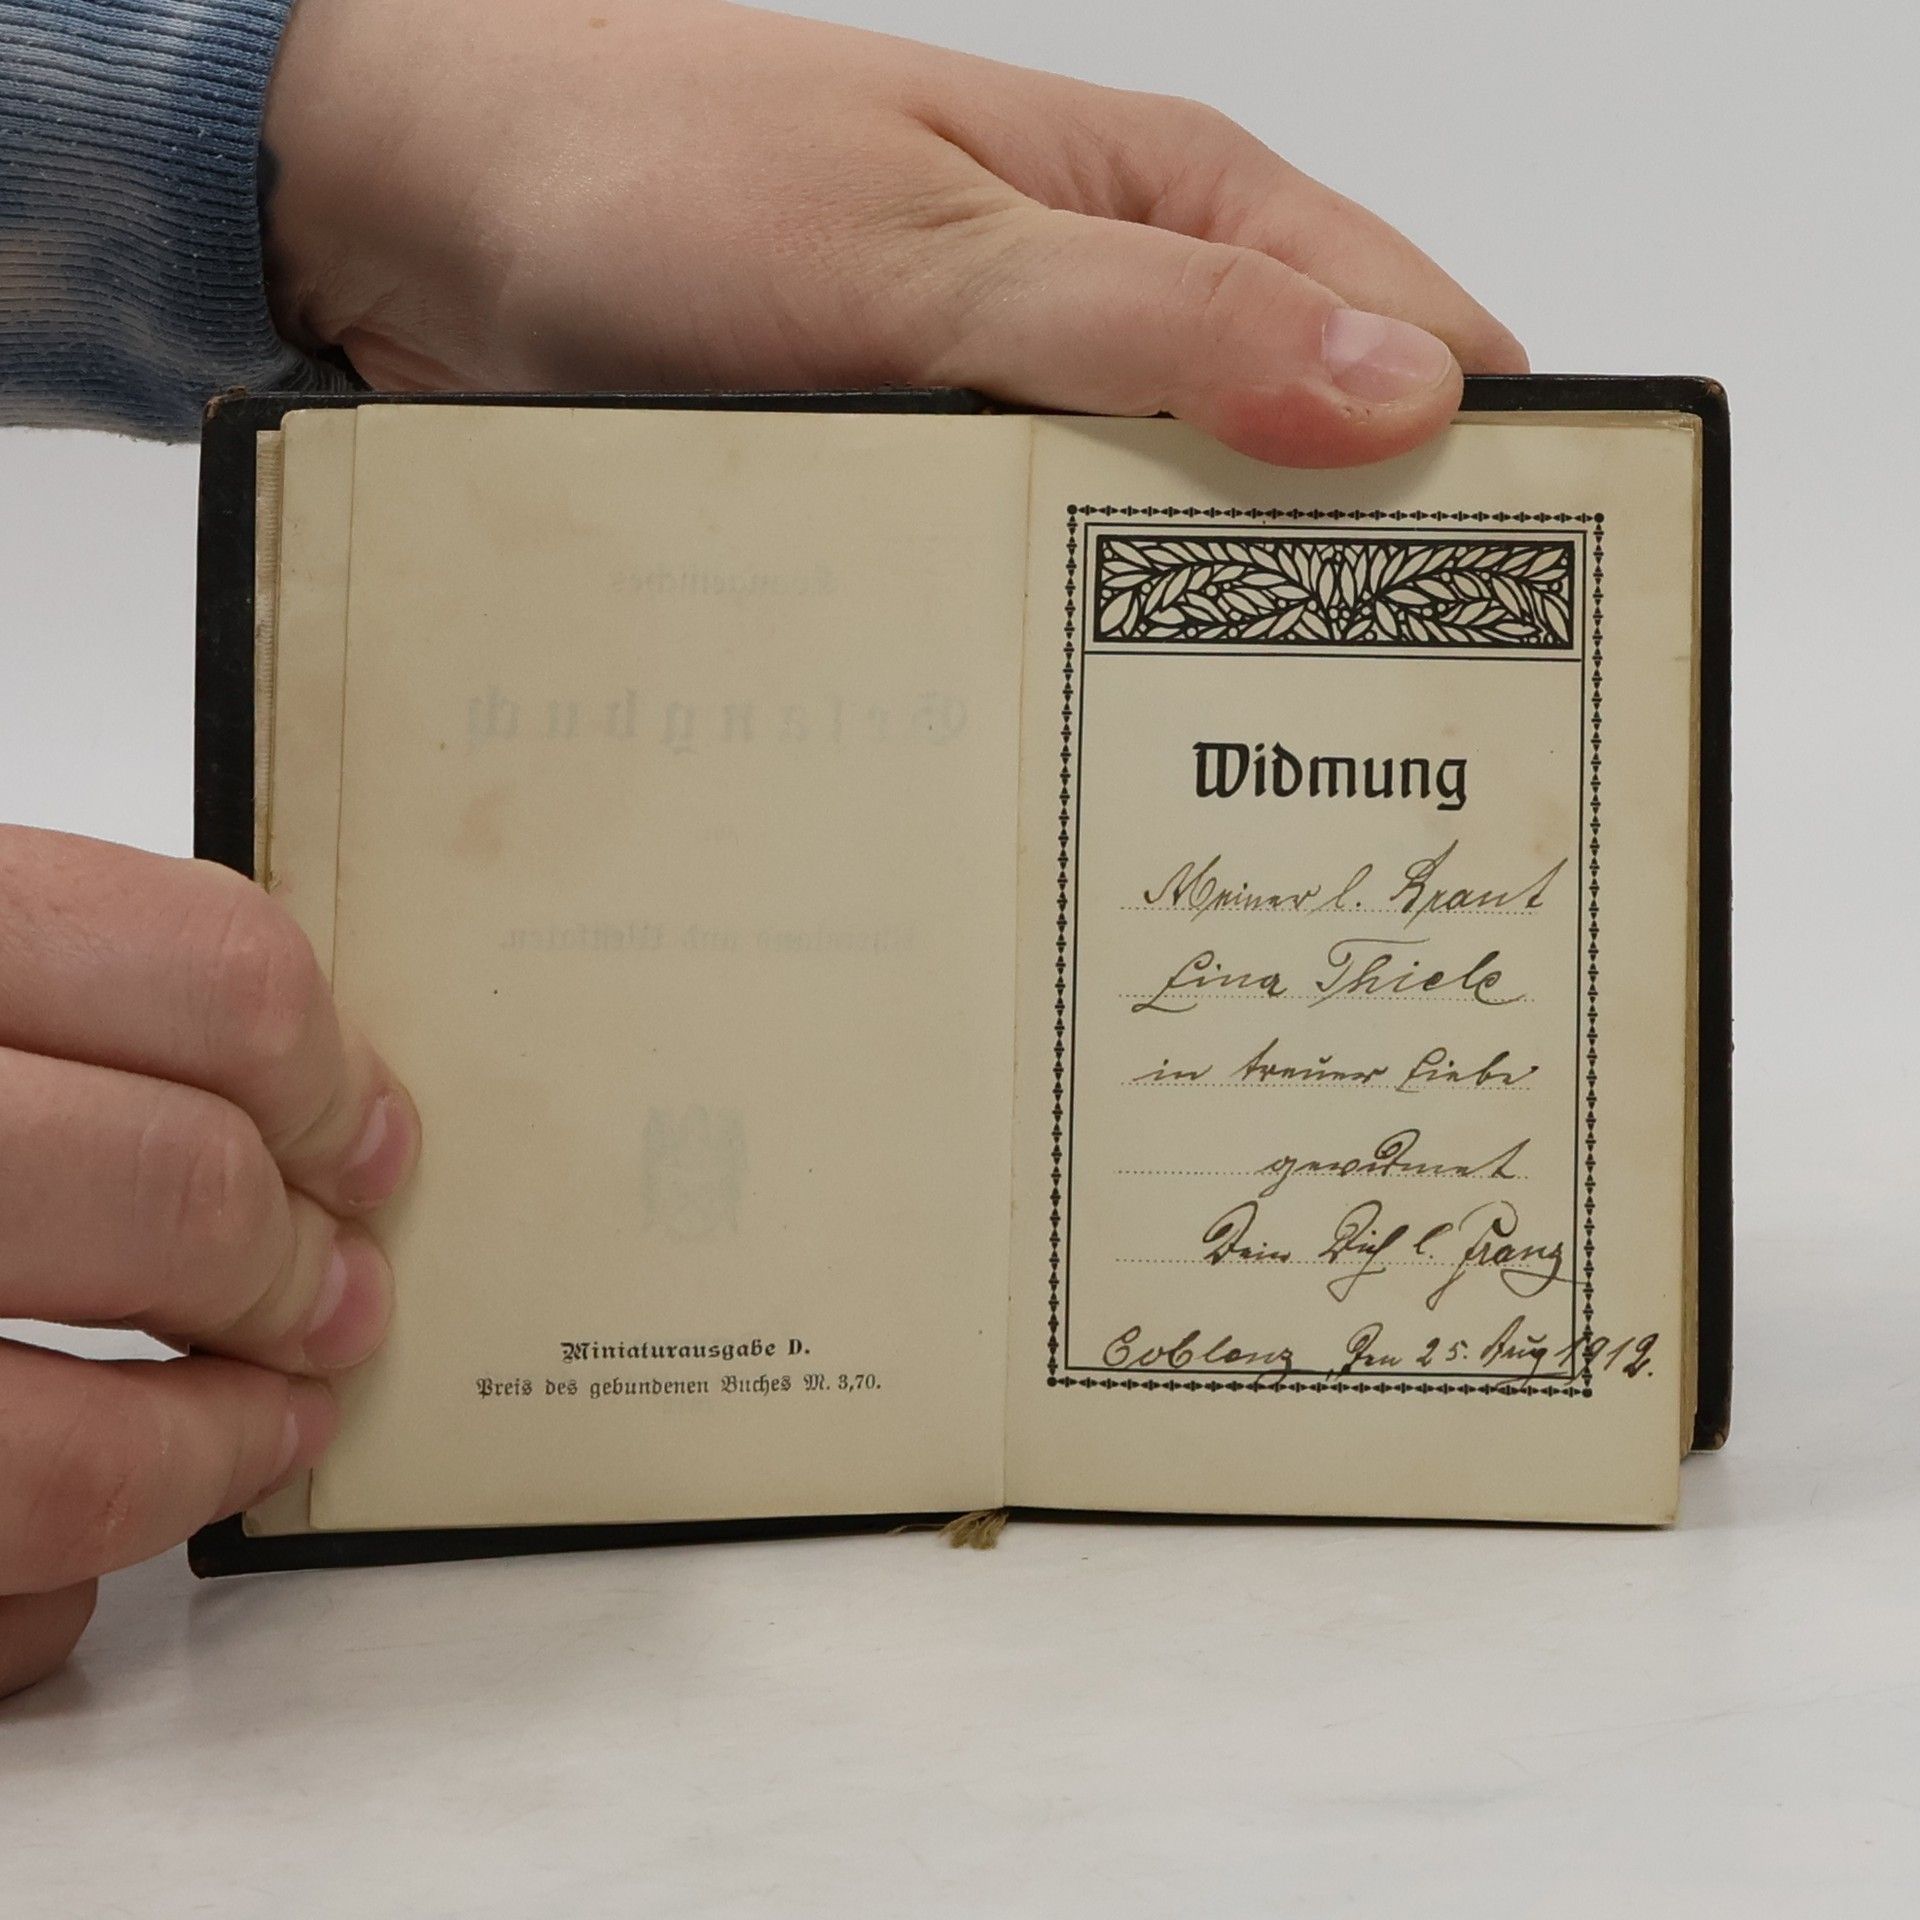 Gesangbuch
Miniaturausgabe D.
Preis des gebundenen Buches M. 3,70.
Widmung
Meiner l. Braut
Lina Thiele
in treuer Liebe
gewidmet
Dein Dich l. Franz
Coblenz, den 25. Aug 1912.